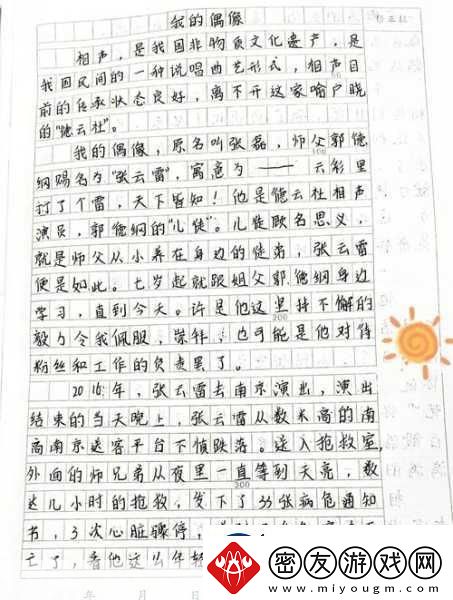 我的偶像
相声，是我国非物质文化遗产，是
我国民间的一种说唱曲艺形式，相声目
前的传承状态良好，离不开这家喻户晓
的“德云社”。
我的偶像，原名叫张磊，师父郭德
纲赐名为“张云雷”，寓意为——云彩里
打了个雷，天下皆知！他是德云社相声
演员，郭德纲的“儿徒”。儿徒顾名思义，
就是师父从小养在身边的徒弟，张云雷
便是如此。七岁起就跟姐父郭德纲身边
学习，直到今天。许是他这坚持不懈的
毅力令我佩服，崇拜，也可能是他对待
粉丝和工作的负责罢了。
2016年，张云雷去南京演出，演出
结束的当天晚上，张云雷从数米高的南
南京送客平台下侦跌落。送入抢救室，
外面的师兄弟从夜里一直等到天亮，数
达几小时的抢救，发下了33张病危通知
书，3次心脏骤停，
亡了，看他这么年轻
100
200
300
年 月
密友游戏网
www.miyougm.com